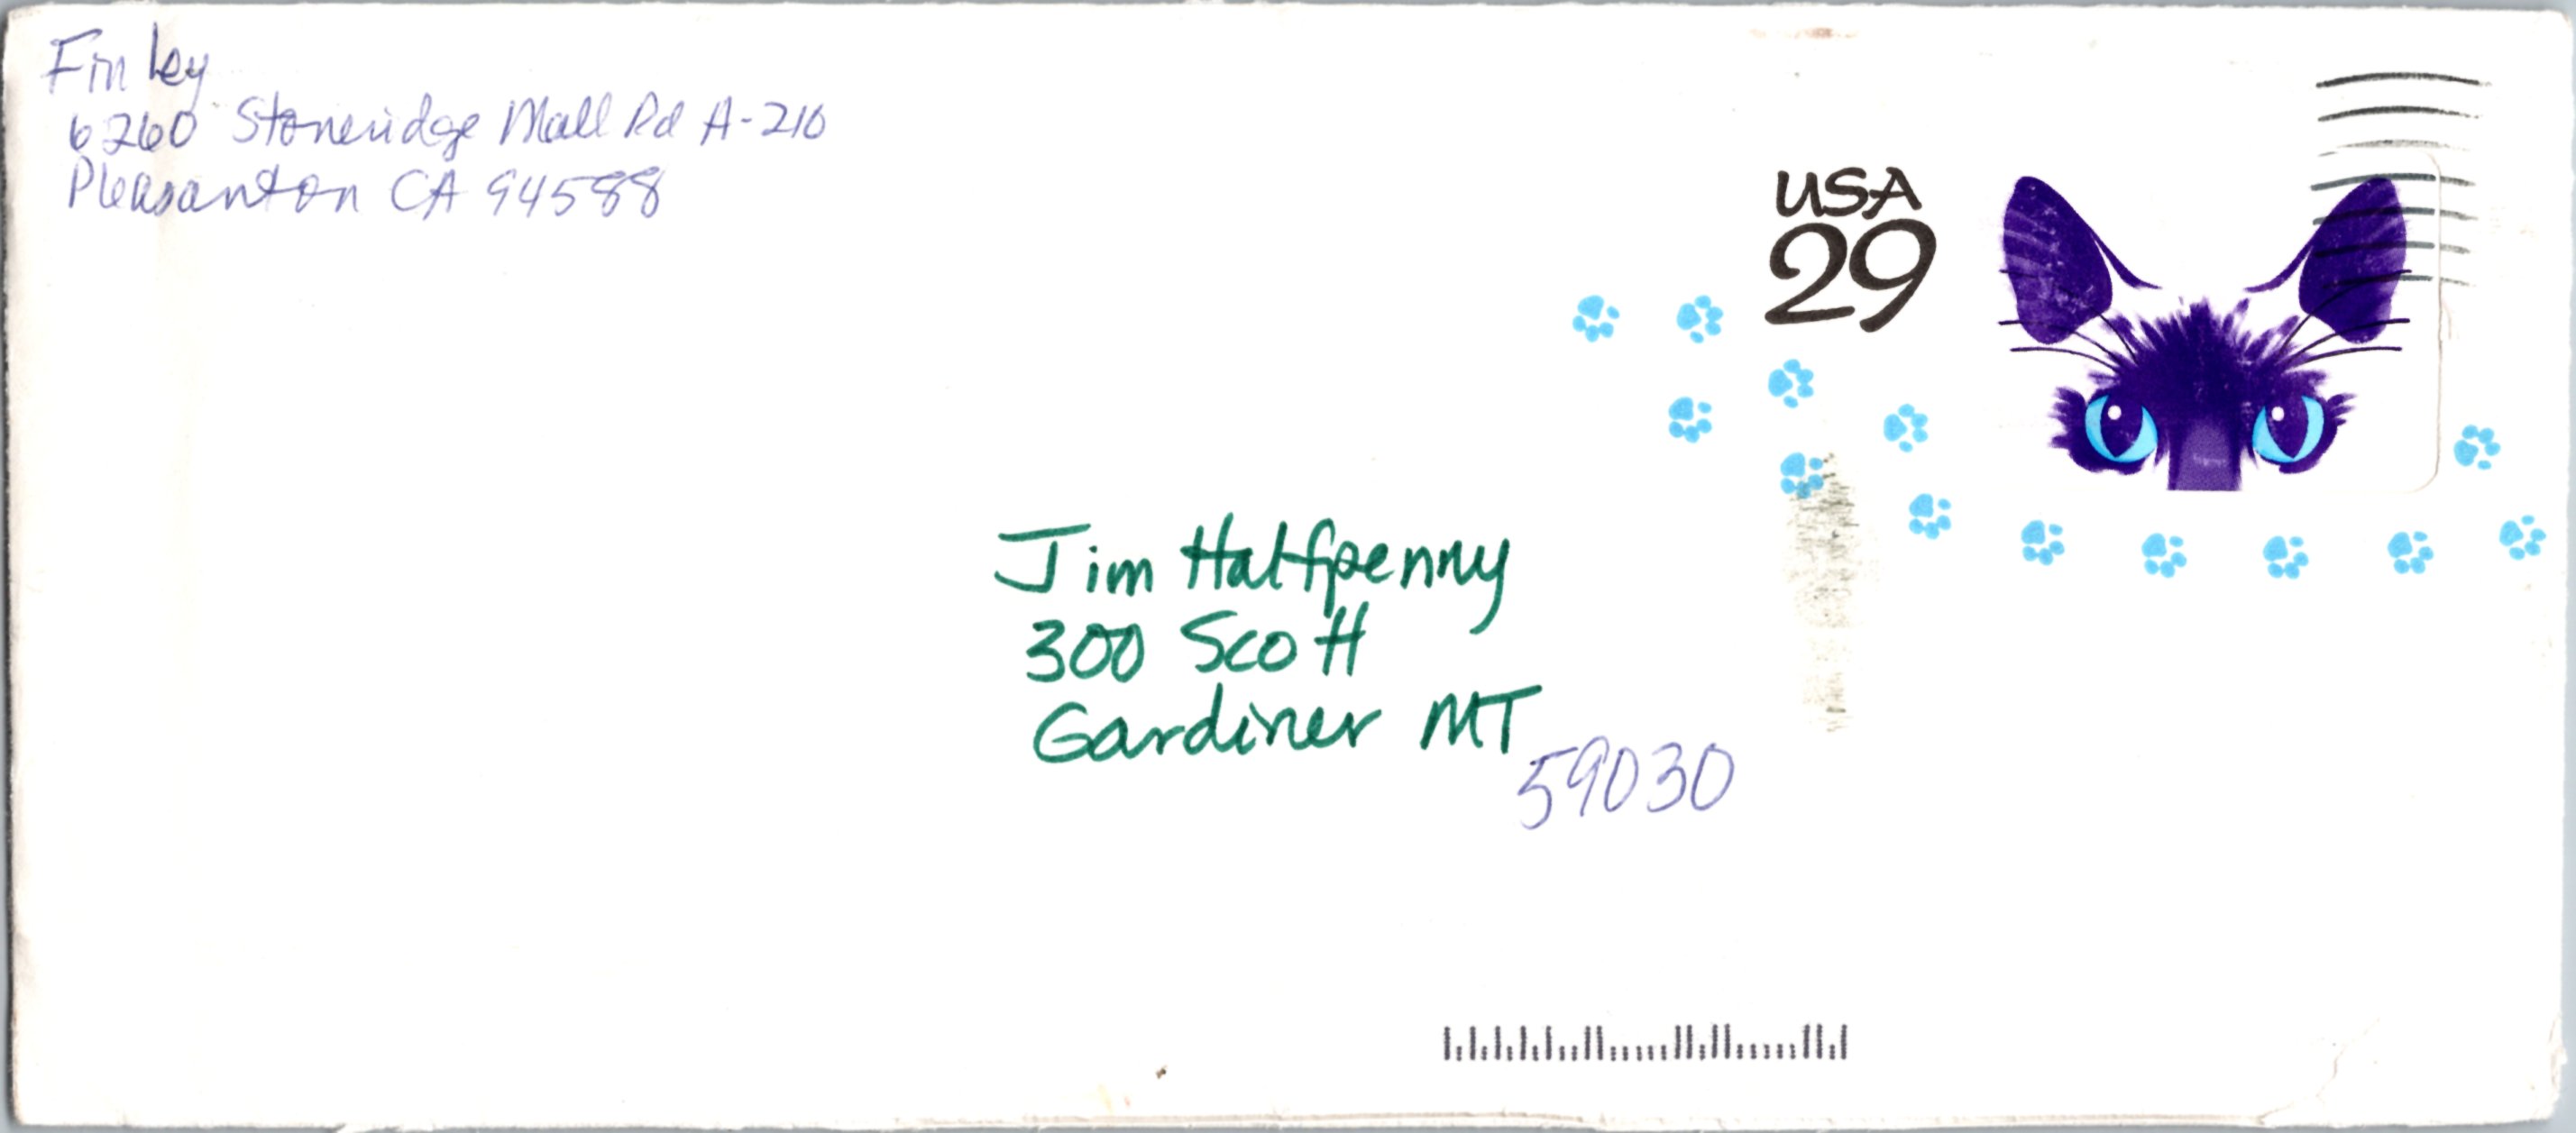 Finley
6260 Stoneridge Mall Rd A-210
Pleasanton CA 94588
USA
29
Jim Halfpenny
300 Scott
Gardiner MT
59030